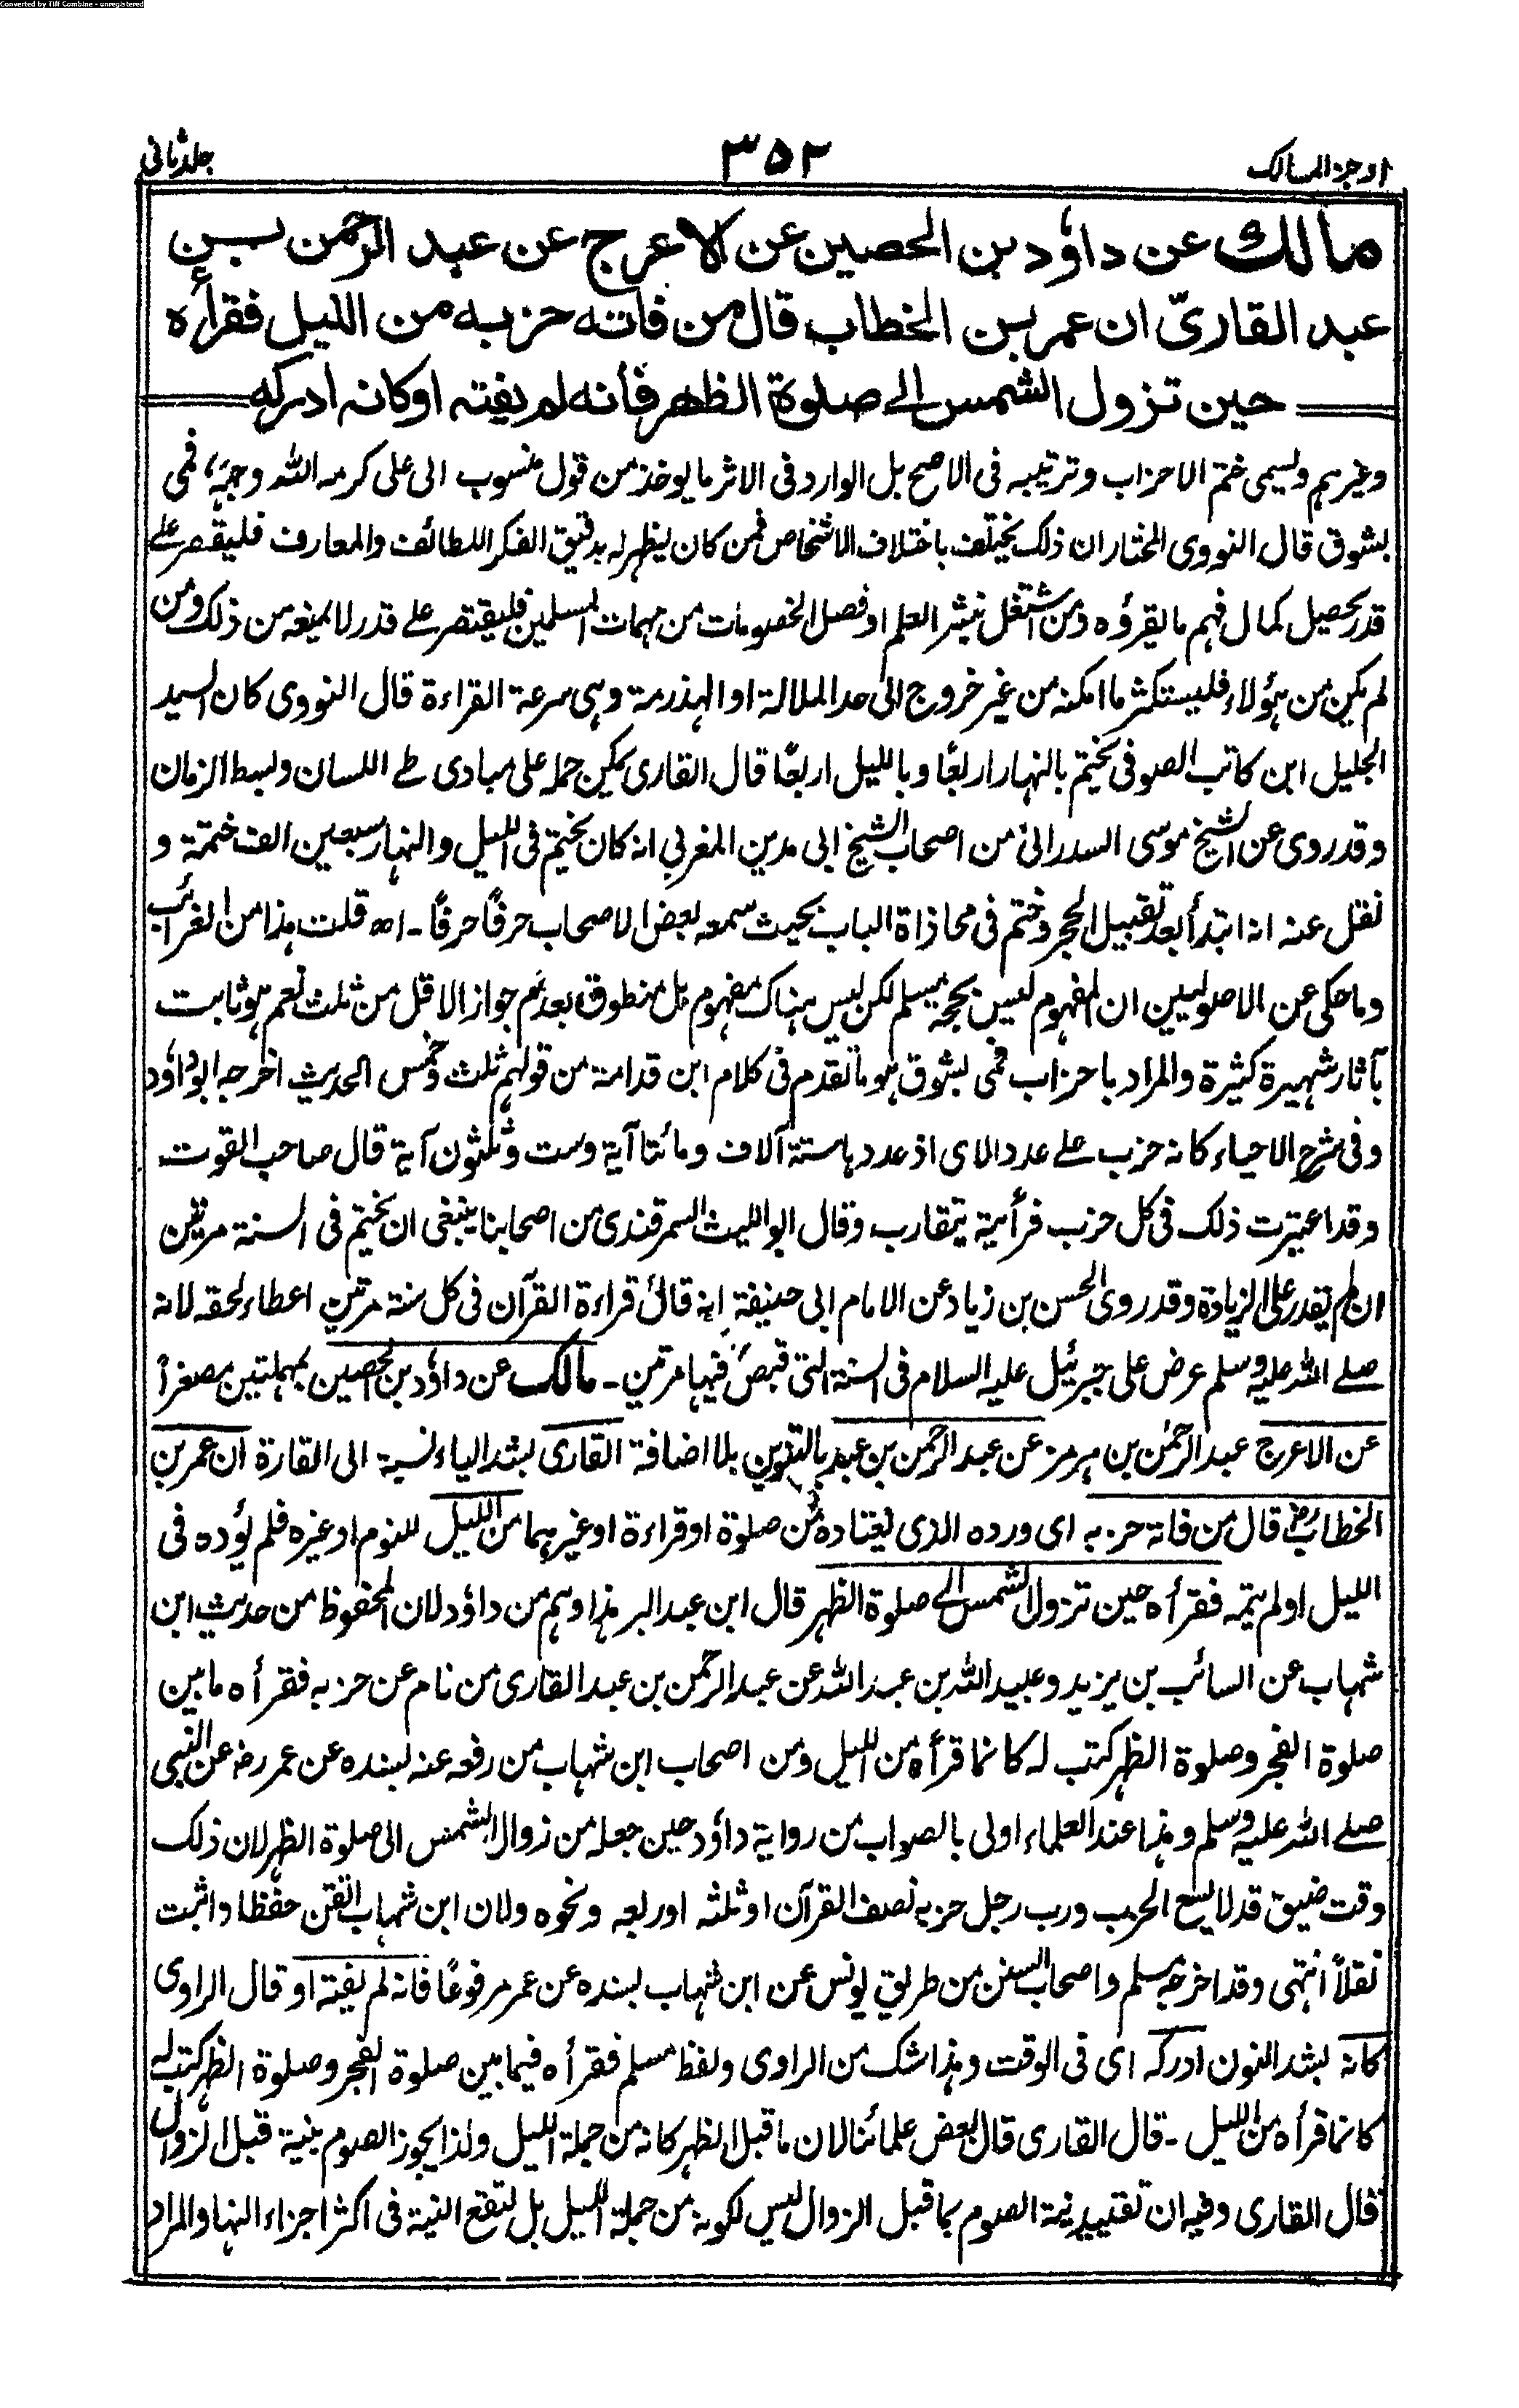 Converted by Tiff Combine - unregistered
اوجز المسالك ۳۵۲ جلد ثانی
مالك عن داؤد بن الحصين عن الاعرج عن عبد الرحمن بن
عبد القاریّ ان عمر بن الخطاب قال من فاته حزبه من الليل فقرأه
حين تزول الشمس الے صلوة الظهر فأنه لم يفته اوكانه ادركه
وغيرہم ويسمى ختم الاحزاب وترتيبه فى الاصح بل الوارد فى الاثر ما يوخذ من قول منسوب الى على كرمه الله وجهہ، فمى
بشوق قال النووى المختار ان ذلك يختلف باختلاف الاشخاص فمن كان يظہر له بدقيق الفكر اللطائف والمعارف فليقتصر علے
قدر يحصل كمال فہم ما يقرؤه ومن اشتغل بنشر العلم او فصل الخصومات من مہمات المسلمين فليقتصر علے قدر لا يمنعه من ذلك ومن
لم يكن من ہؤلاء فليستكثر ما امكنه من غير خروج الى حد الملالة او الہذرمة وہى سرعة القراءة قال النووى كان السيد
الجليل ابن كاتب الصوفى يختم بالنہار اربعًا وبالليل اربعًا قال القارى يمكن حمله على مبادى طے اللسان وبسط الزمان
وقد روى عن الشيخ موسى السدرانى من اصحاب الشيخ ابى مدين المغربى انه كان يختم فى الليل والنہار سبعين الف ختمة و
نقل عنه انه ابتدأ بعد تقبيل الحجر وختم فى محاذاة الباب بحيث سمعه بعض الاصحاب حرفًا حرفًا۔ اھ قلت ہذا من الغرائب
وما حكى عن الاصوليين ان المفہوم ليس بحجة مسلم لكن ليس ہناك مفہوم بل منطوق بعدم جواز الاقل من ثلث نعم ہو ثابت
بآثار شہيرة كثيرة والمراد باحزاب فمى بشوق ہو ما تقدم فى كلام ابن قدامة من قولہم ثلث وخمس الحديث اخرجه ابوداؤد
وفى شرح الاحياء كانه حزب علے عدد الاى اذ عددہا ستة آلاف ومائتا آية وست وثلثون آية قال صاحب القوت
وقد اعتبرت ذلك فى كل حزب فرأيته يتقارب وقال ابو الليث السمرقندى من اصحابنا ينبغى ان يختم فى السنة مرتين
ان لم يقدر على الزيادة وقد روى الحسن بن زياد عن الامام ابى حنيفة انه قال قراءة القرآن فى كل سنة مرتين اعطاء لحقه لانه
صلے اللہ عليہ وسلم عرض على جبرئيل عليہ السلام فى السنة التى قبض فيہا مرتين۔ مالك عن داؤد بن الحصين بمہملتين مصغراً
عن الاعرج عبد الرحمٰن بن ہرمز عن عبد الرحمن بن عبد بالتنوين بلا اضافة القارى بشد الياء نسبة الى القارة ان عمر بن
الخطاب رض قال من فاته حزبه اى ورده الذى يعتاده من صلوة او قراءة او غيرہما من الليل للنوم او غيره فلم يؤده فى
الليل او لم يتمه فقرأه حين تزول الشمس الے صلوة الظہر قال ابن عبد البر ہذا وہم من داؤد لان المحفوظ من حديث ابن
شہاب عن السائب بن يزيد وعبيد اللہ بن عبد اللہ عن عبد الرحمن بن عبد القارى من نام عن حزبه فقرأه ما بين
صلوة الفجر وصلوة الظہر كتب له كانما قرأه من الليل ومن اصحاب ابن شہاب من رفعه عنه بسنده عن عمر رض عن النبى
صلے اللہ عليہ وسلم وہذا عند العلماء اولى بالصواب من رواية داؤد حين جعله من زوال الشمس الى صلوة الظہر لان ذلك
وقت ضيق قد لا يسع الحزب ورب رجل حزبه نصف القرآن او ثلثه او ربعه ونحوه ولان ابن شہاب اتقن حفظا واثبت
نقلاً انتہى وقد اخرجه مسلم واصحاب السنن من طريق يونس عن ابن شہاب بسنده عن عمر مرفوعًا فانه لم يفته او قال الراوى
كانه بشد النون ادركه اى فى الوقت وہذا شك من الراوى ولفظ مسلم فقرأه فيما بين صلوة الفجر وصلوة الظہر كتب له
كانما قرأه من الليل۔ قال القارى قال بعض علمائنا لان ما قبل الظہر كانه من جملة الليل ولذا يجوز الصوم بنية قبل الزوال
قال القارى وفيه ان تقييد نية الصوم بما قبل الزوال ليس لكونه من جملة الليل بل لتقع النية فى اكثر اجزاء النہار والمراد